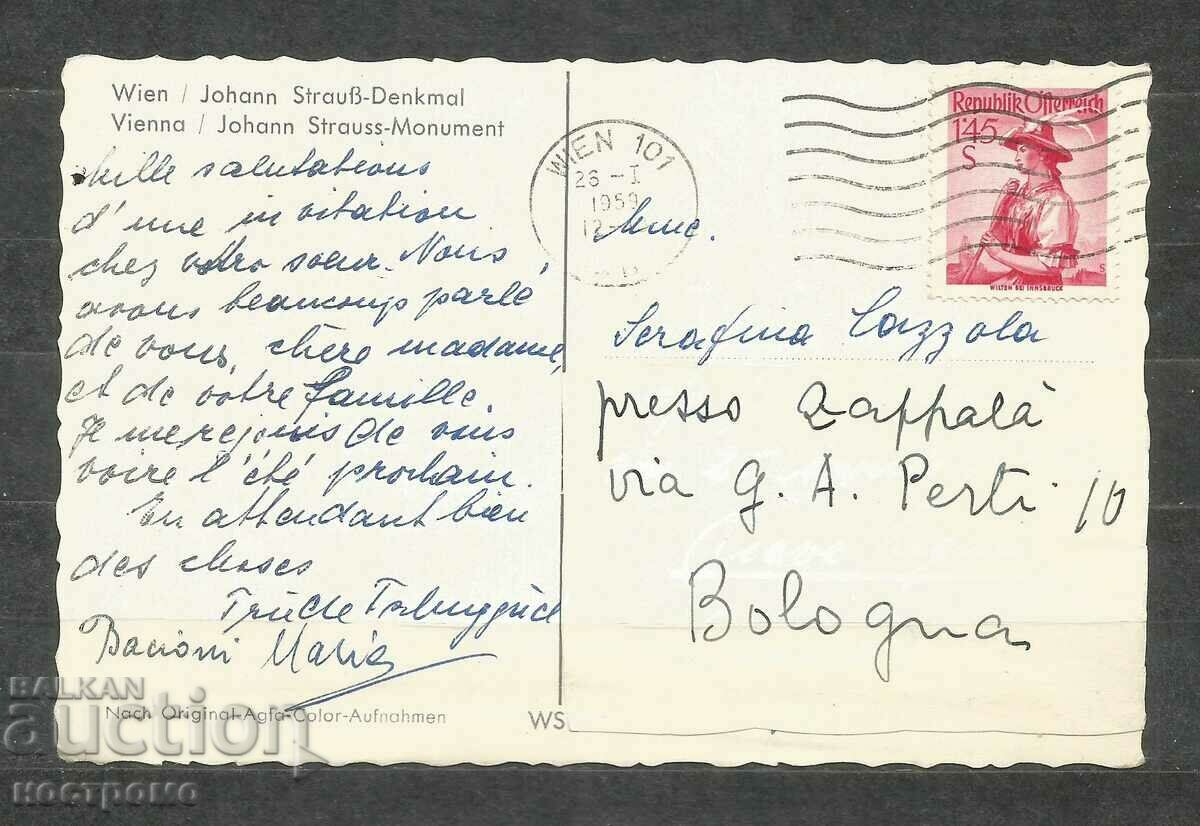 Wien / Johann Strauß-Denkmal
Vienna / Johann Strauss-Monument
Mille salutations
d'une invitation
chez votre sœur. Nous
avons beaucoup parlé
de vous, chère madame,
et de votre famille.
Je me rejouis de vous
voire l'été prochain.
En attendant bien
des choses
Trude
Bacioni Maria
Nach Original-Agfa-Color-Aufnahmen
WS
WIEN 101
26 -I
1959
12-
Republik Österreich
1'45
S
WILTEN BEI INNSBRUCK
Mme.
Serafina Cazzola
presso Zappalà
via G. A. Perti 10
Bologna
BALKAN
auction
костромо